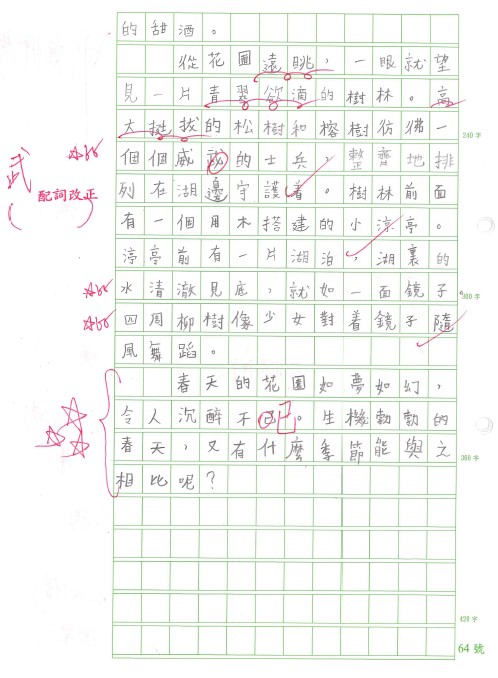 的甜酒。
從花圃遠眺，一眼就望
見一片青翠欲滴的樹林。高
大挺拔的松樹和榕樹彷彿一
240字
武
個個威武的士兵，整齊地排
配詞改正
(　　)
列在湖邊守護着。樹林前面
有一個用木搭建的小涼亭。
涼亭前有一片湖泊，湖裏的
水清澈見底，就如一面鏡子。
300字
四周柳樹像少女對着鏡子隨
風舞蹈。
春天的花園如夢如幻，
令人沉醉不己已。生機勃勃的
春天，又有什麼季節能與之
360字
相比呢？
420字
64號